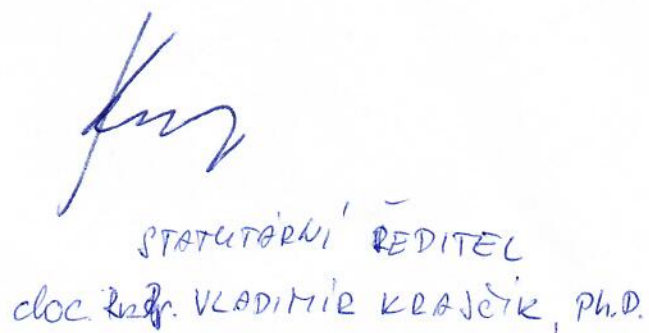 STATUTÁRNÍ ŘEDITEL
doc. VLADIMÍR KRAJČÍK, Ph.D.